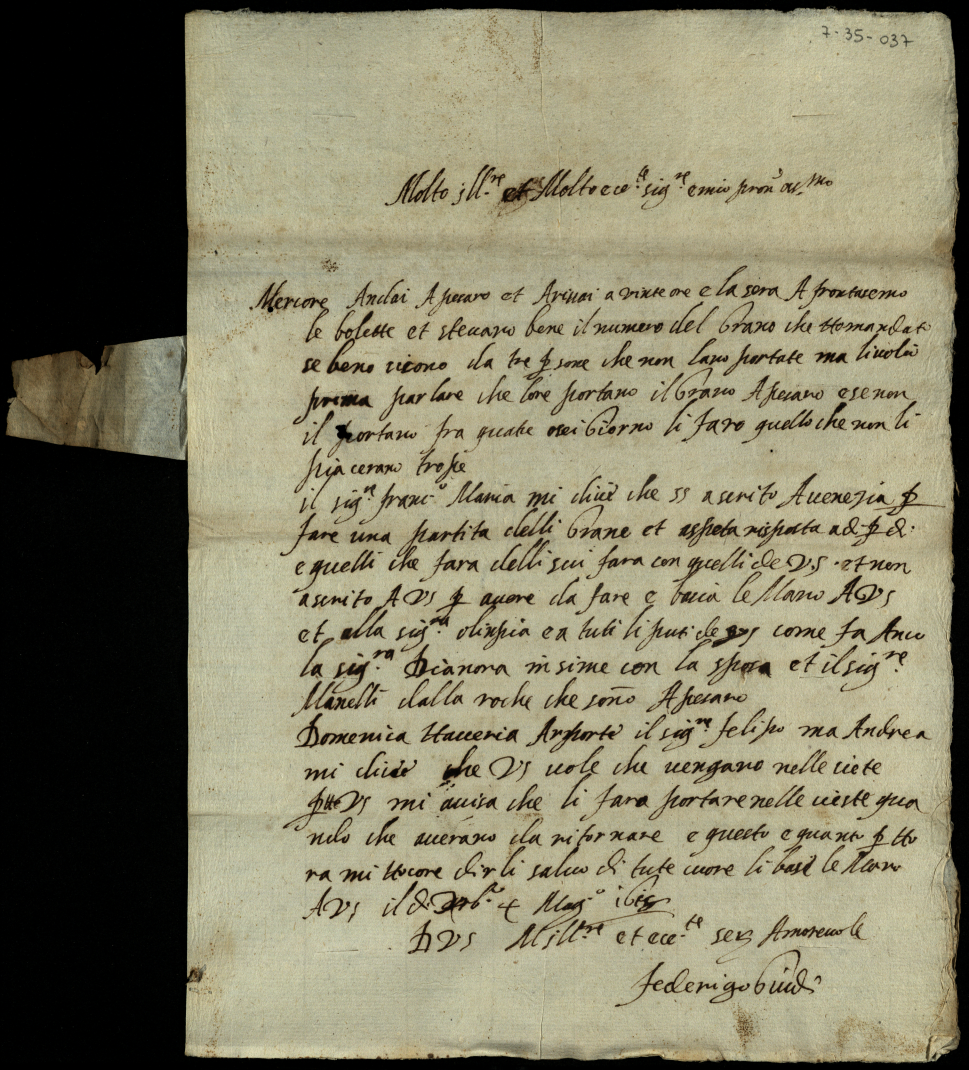 7-35-037
Molto jll.re et Molto ece.te sig.re e mio pron.e oss.mo
Mercore Andai Apesaro et Arivai a vinte ore e la sera Afrontasemo
le bolette et stevano bene il numero del Grano che ttomandato
se beno sicono da tre p sone che non lano portate ma li volio
prima parlare che lore portano il Grano Apesaro e se non
il portano fra quatre o sei Giorno li faro quello che non li
piacerano tropie
il sig.re franc.o Maria mi dicie che ss a scrito Avenezia p
fare una partita delli Grane et aspeta risposta a di p di
e quelli che fara delli sui fara con quelli de VS. et non
a scrito AVS p avere da fare e bacia le Mano AVS
et alla sig.ra olinpia e a tuti li puti de VS come fa Anco
la sig.ra Dianora insime con la sposa et il sig.re
Manelli dalla roche che sono Apesaro
Domenica il sig.re felipo ma Andrea
mi dicie che VS vole che vengano nelle viete
VS mi avisa che li fara portare nelle vieste qua
ndo che averano da ritornare e questo e quanto p tto
ra mi ttocore dirli salvo di tute cuore li basi le Mano
AVS il di
D VS M jll.re et ece.te ser Amorevole
federigo Guidi